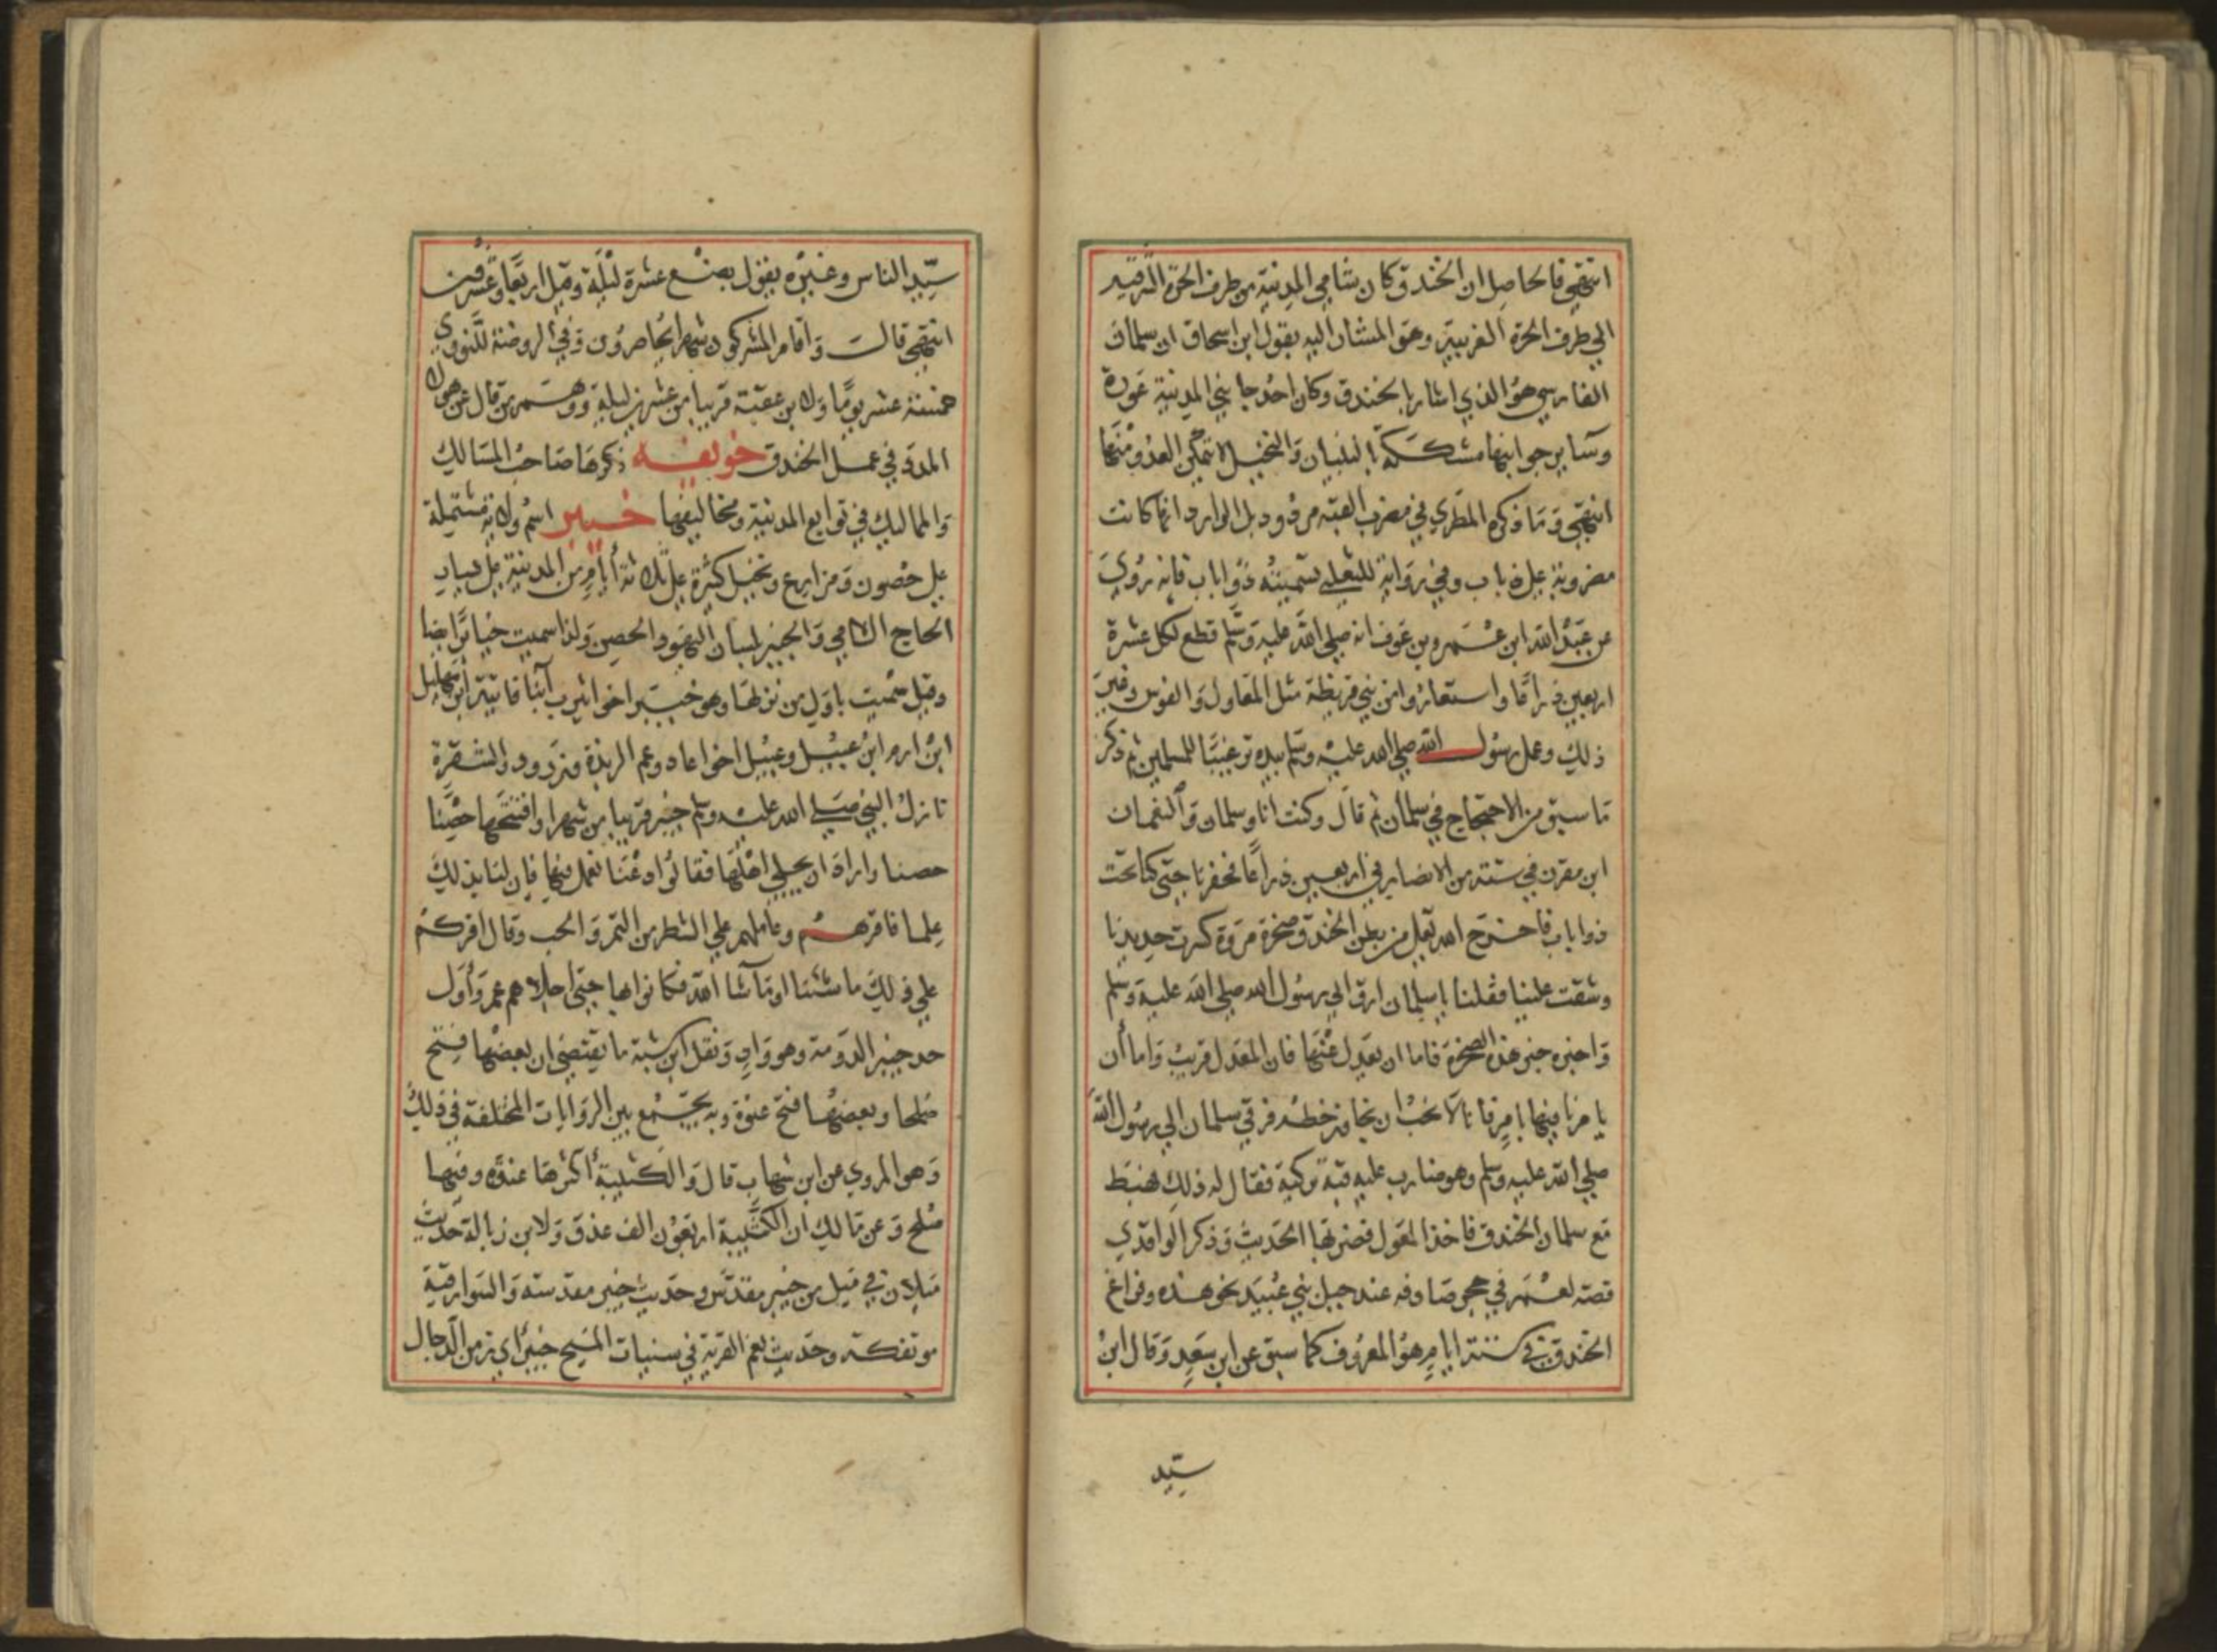 انتهى فالحاصل ان الخندق كان شامي المدينة من طرف الحرة الشرقية
الى طرف الحرة الغربية وهو المشار اليه بقول ابن اسحاق ان سلمان
الفارسي هو الذي اشار بالخندق وكان احد جانبي المدينة عورة
وساير جوانبها مشككة بالبنيان والنخيل لا يتمكن العدو منها
انتهى وما ذكره المطري في مضرب القبة مردود بل الوارد انما كانت
مضروبة على ذباب وفي رواية للثعلبي تسميته ذواباب فانه روي
عن عبد الله ابن عمرو بن عوف انه صلى الله عليه وسلم قطع لكل عشرة
اربعين ذراعا واستعاروا من بني قريظة مثل المعاول والفوس وغير
ذلك وعمل رسول الله صلى الله عليه وسلم بيده ترغيبا للمسلمين ثم ذكر
ما سبق من الاحتجاج في سلمان ثم قال وكنت انا وسلمان والنعمان
ابن مقرن في ستة من الانصار في اربعين ذراعا فحفرنا حتى كنا تحت
ذواباب فاخرج الله تعالى من بطن الخندق صخرة مروة كسرت حديدنا
وشقت علينا فقلنا يا سلمان ارق الى رسول الله صلى الله عليه وسلم
واخبره خبر هذه الصخرة فاما ان يعدل عنها فان المعدل قريب واما أن
يامرنا فيها بامره فانا لا نحب ان نجاوز خطه فرقي سلمان الى رسول الله
صلى الله عليه وسلم وهو ضارب عليه قبة تركية فقال له ذلك فهبط
مع سلمان الخندق فاخذ المعول فضربها الحديث وذكر الواقدي
قصة لعمر في حجر صادفه عند جبل بني عبيد نحو هذه وفراغ
الخندق في ستة ايام هو المعروف كما سبق عن ابن سعد وقال ابن
سيد
سيد الناس وغيره يقول بضع عشرة ليلة وقيل اربعا وعشرين
انتهى قالت واقام المشركون شهرا يحاصرون وفي الروضة للنووي
خمسة عشر يوما ولابن عقبة قريبا من عشرين ليلة ووهم من قال عن هولا
المدة في عمل الخندق خويفه ذكرها صاحب المسالك
والممالك في توابع المدينة ومخاليفها خيبر اسم ولاية مشتملة
على حصون ومزارع ونخيل كثيرة على ثلاثة أيام من المدينة على يسار
الحاج الشامي والخيبر بلسان اليهود الحصن ولذا سميت خيابر ايضا
وقيل سميت باول من نزلها وهو خيبر اخو يثرب ابنا قانية ابن مهليل
ابن ارم ابن عبيل وعبيل اخو عاد وعم الربذة وزرود والشقرة
نازل النبي صلى الله عليه وسلم خيبر قريبا من شهر وافتتحها حصنا
حصنا واراد ان يجلي اهلها فقالوا دعنا نعمل فيها فان لنا بذلك
علما فاقرهم وعاملهم على الشطر من التمر والحب وقال اقركم
على ذلك ما شئنا او ما شا الله فكانوا بها حتى اجلاهم عمر وأول
حد خيبر الدومة وهو وادي ونقل ابن شبة ما يقتضي ان بعضها فتح
صلحا وبعضها فتح عنوة وبه يجتمع بين الروايات المختلفة في ذلك
وهو المروي عن ابن شهاب قال والكتيبة أكثرها عنوة وفيها
صلح وعن مالك ان الكتيبة اربعون الف عذق ولابن زبالة حديث
ميلان في ميل من خيبر مقدس وحديث خيبر مقدسة والسوارقية
موتفكة وحديث نعم القرية في سنيات المسيح خيبر اي زمن الدجال